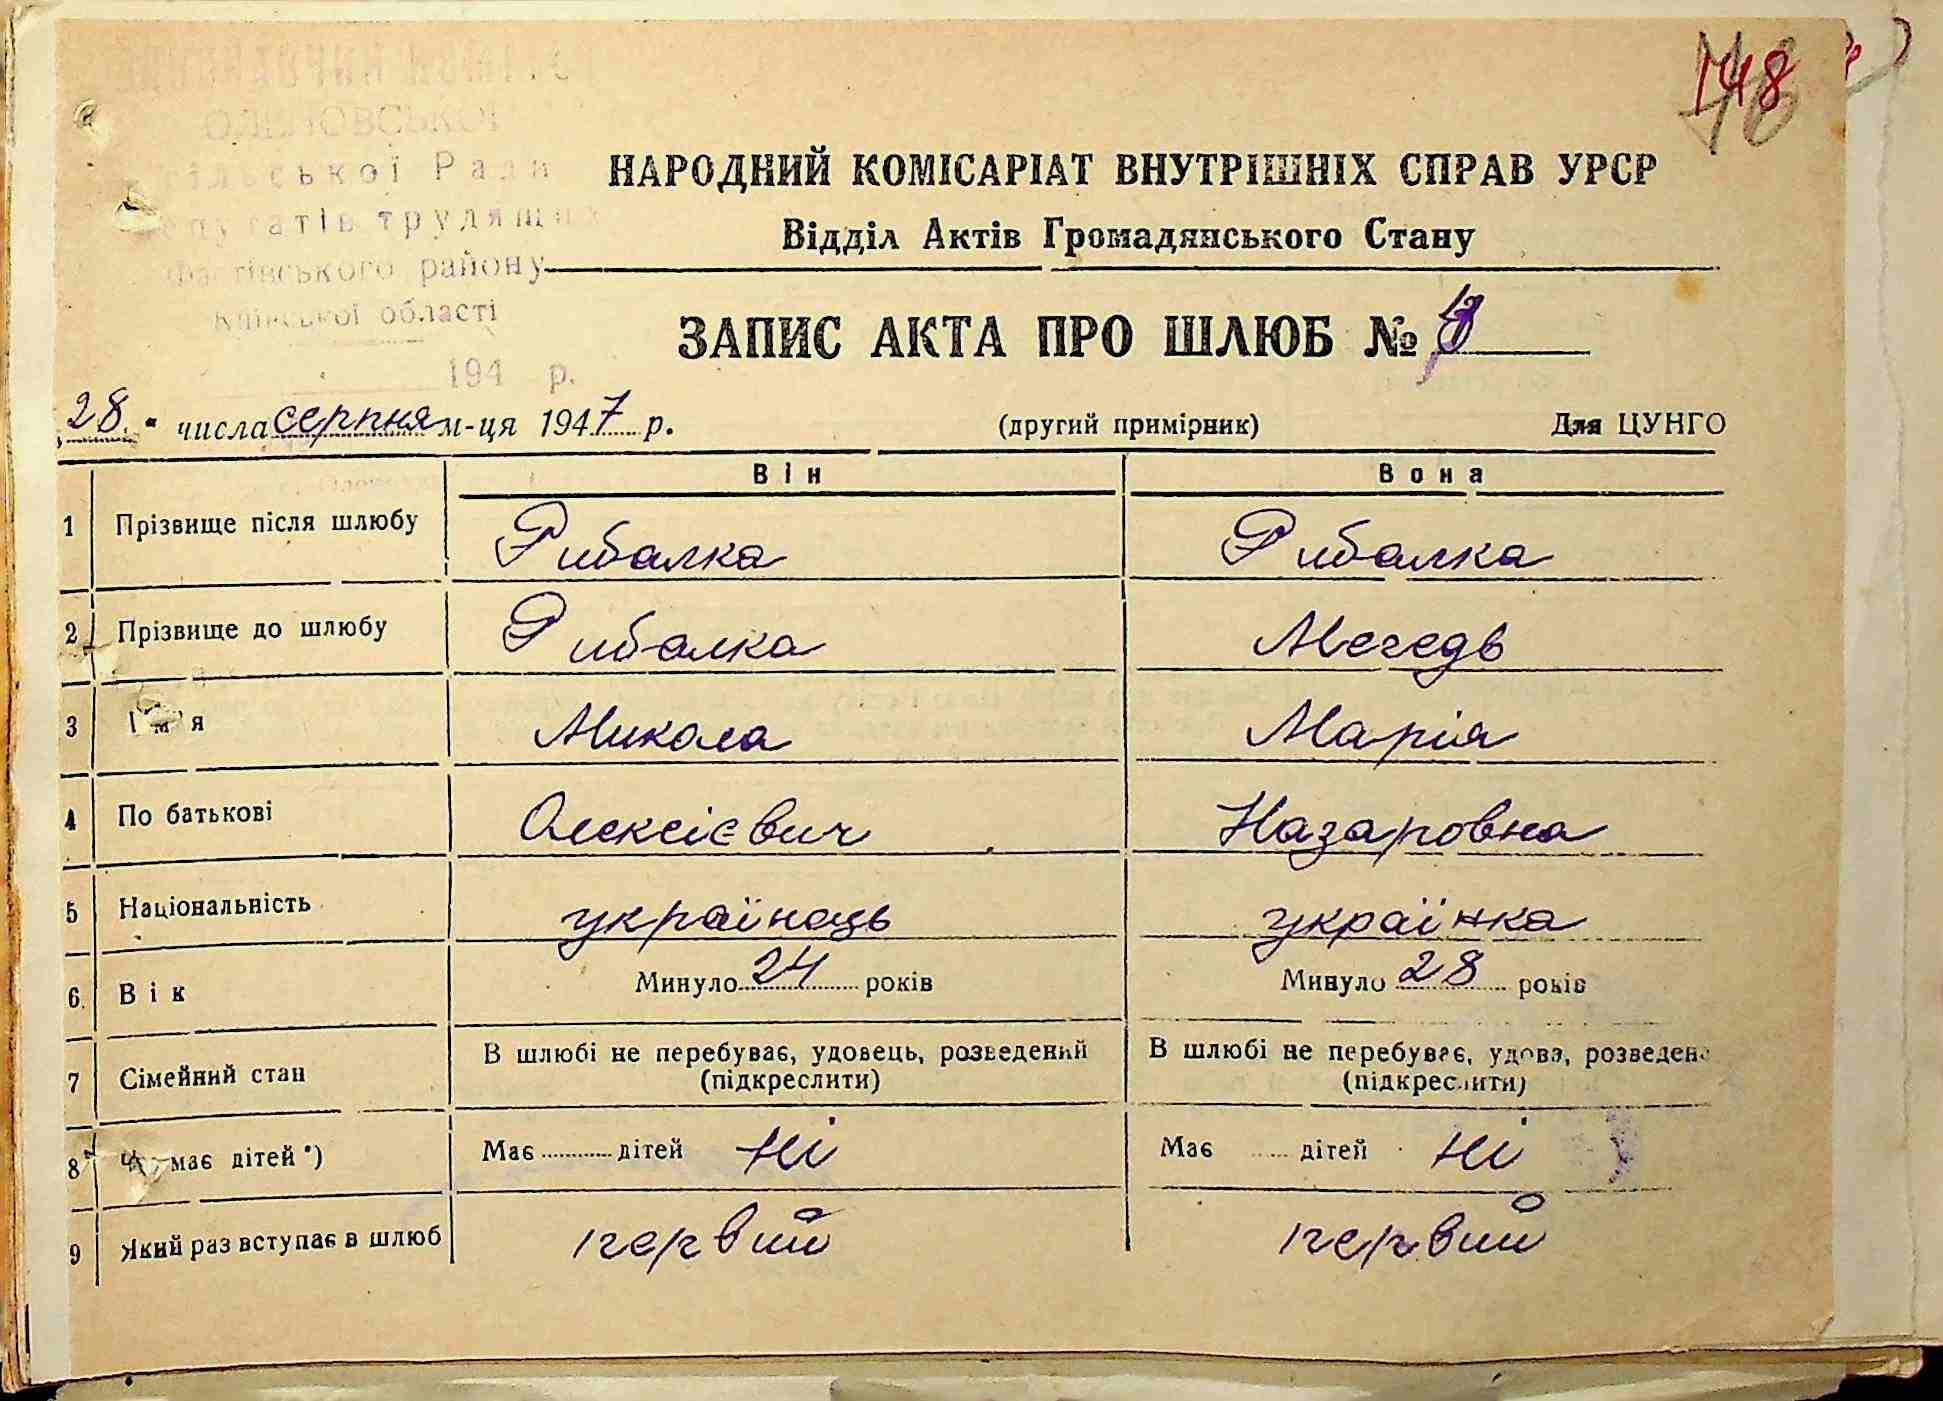 148
сільської Ради
депутатів трудящих
Фастівського району
Київської області
194 р.
НАРОДНИЙ КОМІСАРІАТ ВНУТРІШНІХ СПРАВ УРСР
Відділ Актів Громадянського Стану
ЗАПИС АКТА ПРО ШЛЮБ №
28 " числа серпня м-ця 1947 р. (другий примірник) Для ЦУНГО
Він Вона
1 Прізвище після шлюбу Рибалка Рибалка
2 Прізвище до шлюбу Рибалка Мегедь
3 Ім'я Микола Марія
4 По батькові Олексієвич Назаровна
5 Національність українець українка
6 Вік Минуло 24 років Минуло 28 років
7 Сімейний стан В шлюбі не перебуває, удовець, розведений (підкреслити) В шлюбі не перебуває, удова, розведена (підкреслити)
8 Чи має дітей*) Має дітей ні Має дітей ні
9 Який раз вступає в шлюб первий первий